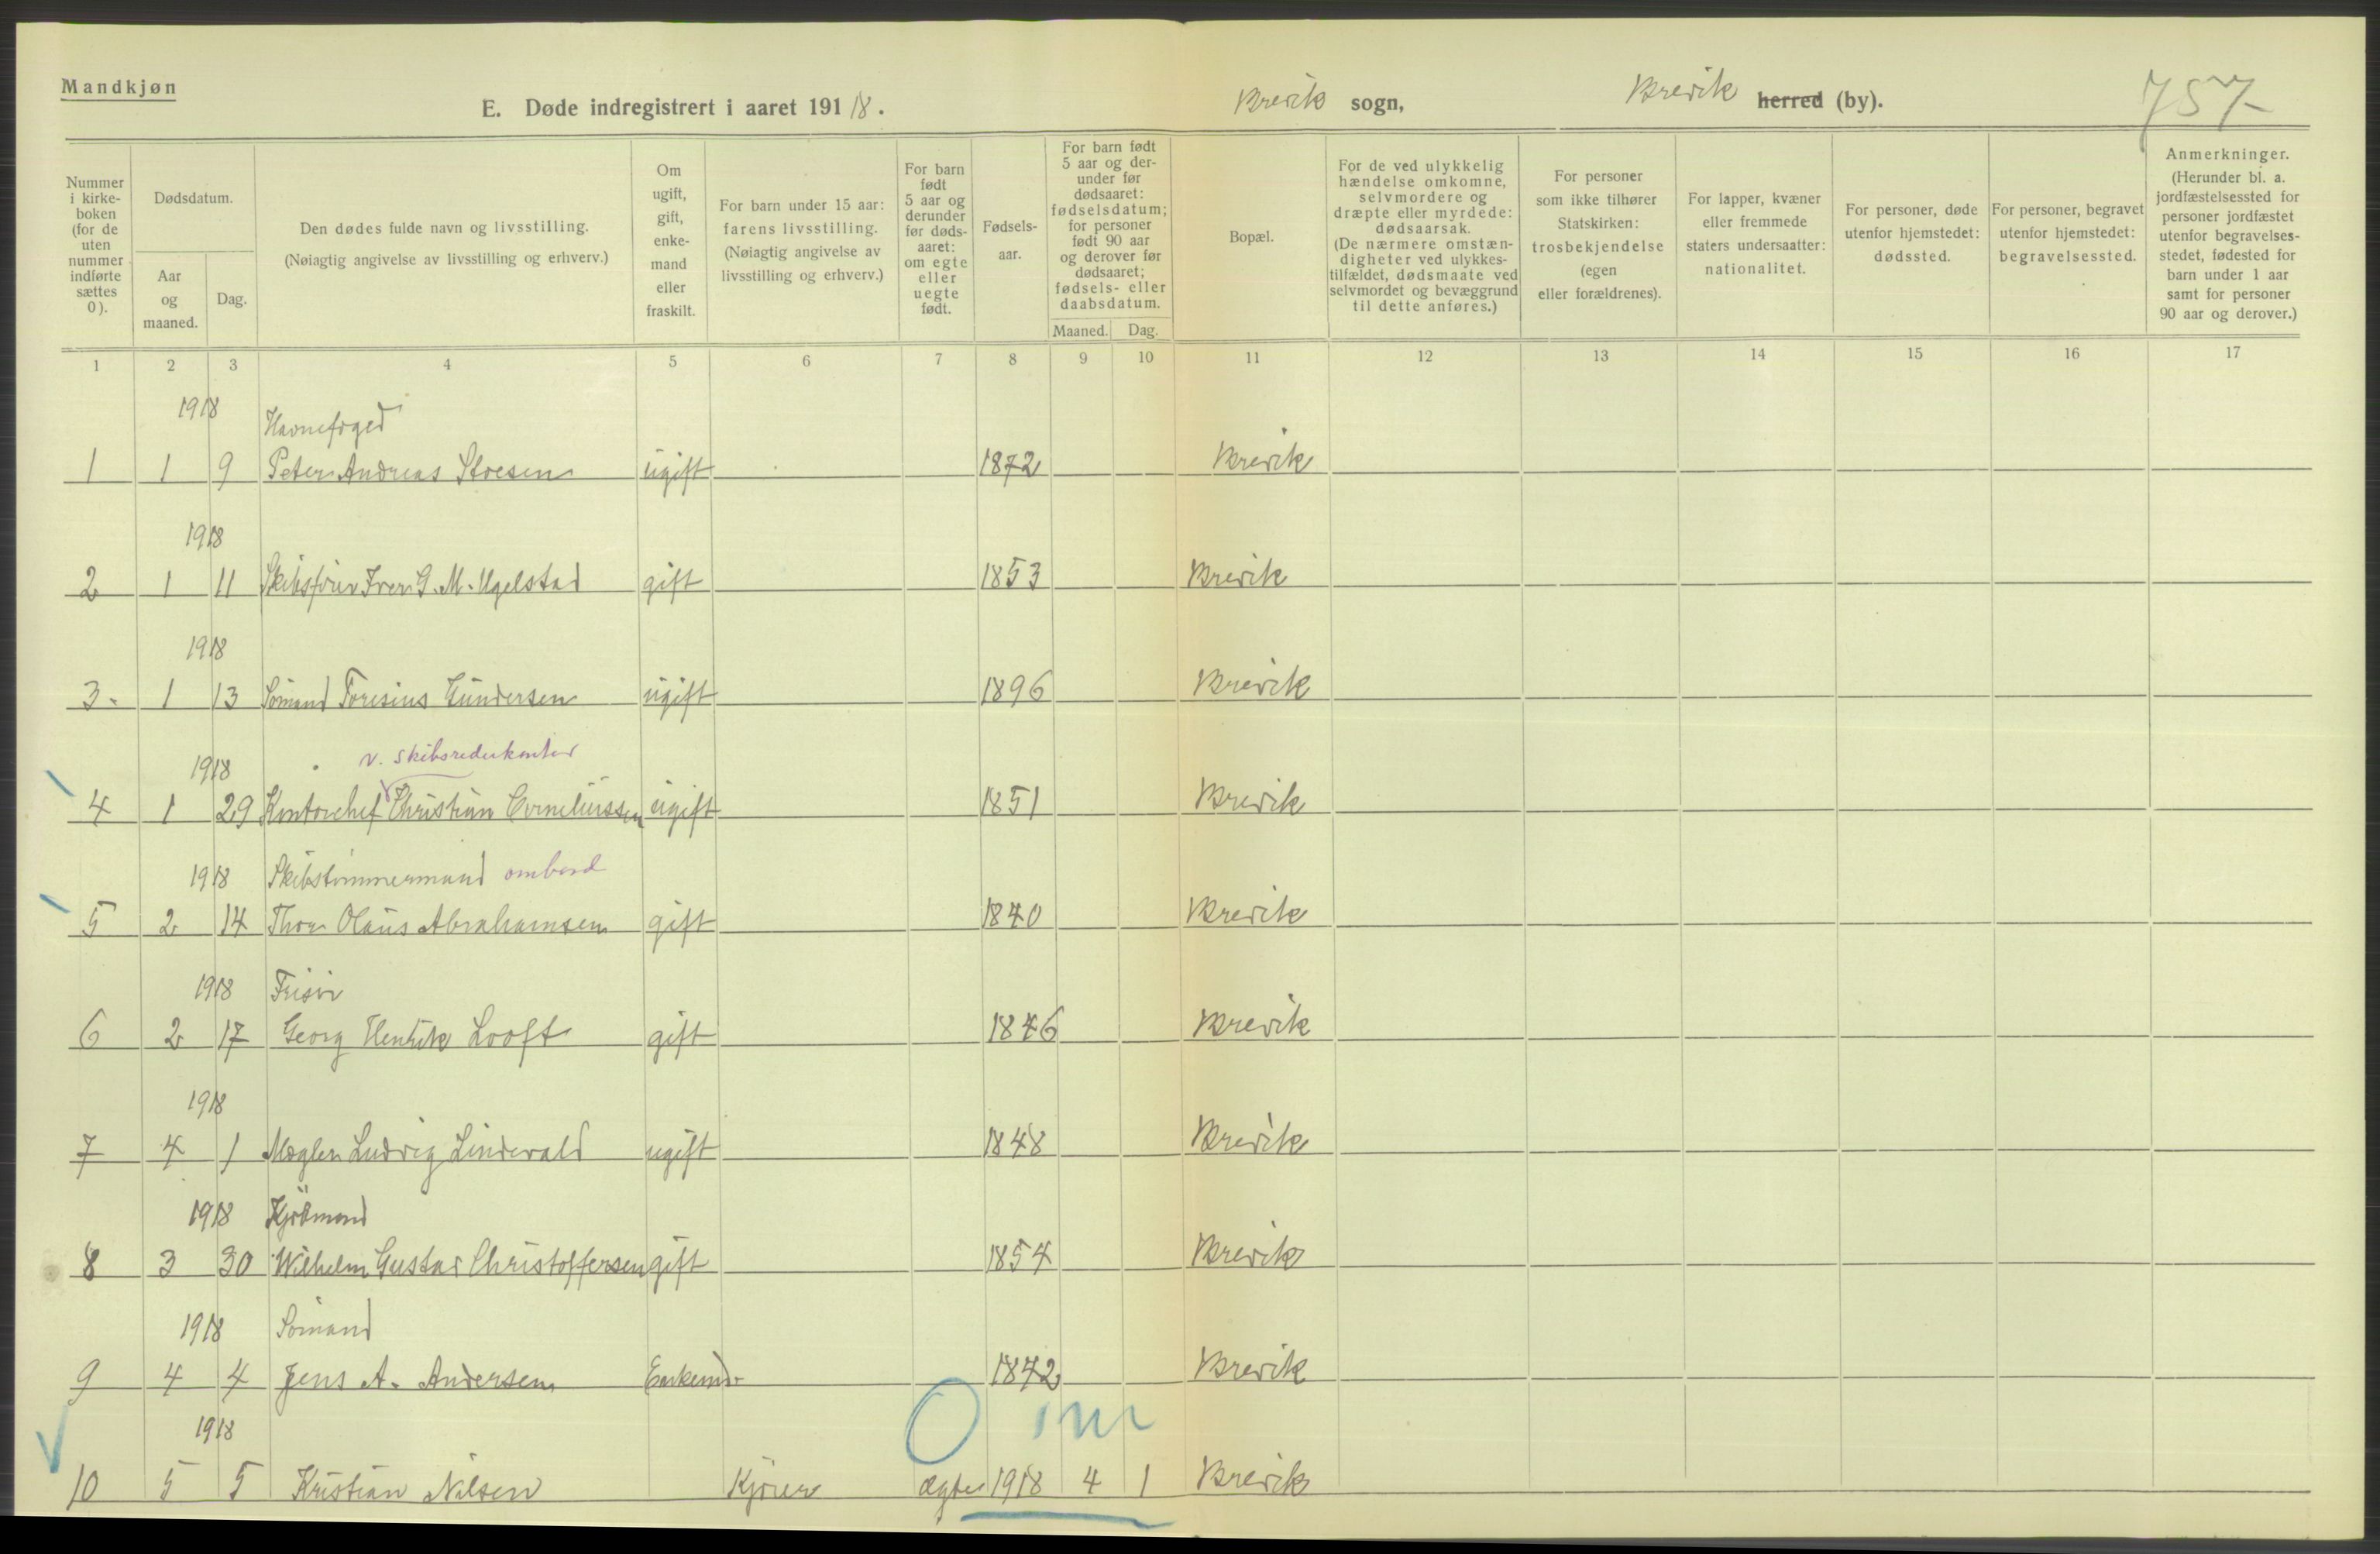 Mandkjøn
E. Døde indregistrert i aaret 1918. Brevik sogn, Brevik herred (by). 757
Nummer i kirke-boken (for de uten nummer indførte sættes 0).
Dødsdatum.
Aar og maaned.
Dag.
Den dødes fulde navn og livsstilling.
(Nøiagtig angivelse av livsstilling og erhverv.)
Om ugift, gift, enke-mand eller fraskilt.
For barn under 15 aar: farens livsstilling.
(Nøiagtig angivelse av livsstilling og erhverv.)
For barn født 5 aar og derunder før døds-aaret: om egte eller uegte født.
Fødsels-aar.
For barn født 5 aar og der-under før dødsaaret: fødselsdatum; for personer født 90 aar og derover før dødsaaret; fødsels- eller daabsdatum.
Maaned. Dag.
Bopæl.
For de ved ulykkelig hændelse omkomne, selvmordere og dræpte eller myrdede: dødsaarsak.
(De nærmere omstæn-digheter ved ulykkes-tilfældet, dødsmaate ved selvmordet og bevæggrund til dette anføres.)
For personer som ikke tilhører Statskirken: trosbekjendelse (egen eller forældrenes).
For lapper, kvæner eller fremmede staters undersaatter: nationalitet.
For personer, døde utenfor hjemstedet: dødssted.
For personer, begravet utenfor hjemstedet: begravelsessted.
Anmerkninger.
(Herunder bl. a. jordfæstelsessted for personer jordfæstet utenfor begravelses-stedet, fødested for barn under 1 aar samt for personer 90 aar og derover.)
1 2 3 4 5 6 7 8 9 10 11 12 13 14 15 16 17
1918 Havnefoged
1 1 9 Peter Andreas Stoesen ugift 1872 Brevik
1918
2 1 11 Skibsfører Iver G. M. Ugelstad gift 1853 Brevik
1918
3. 1 13 Sømand Toresius Gundersen ugift 1896 Brevik
1918 v. skibsrederkontor
4 1 29 Kontorchef Christian Corneliussen ugift 1851 Brevik
1918 Skibstømmermand ombord
5 2 14 Thor Olaus Abrahamsen gift 1840 Brevik
1918 Frisør
6 2 17 Georg Henrik Looft gift 1846 Brevik
1918
7 4 1 Mægler Ludvig Lindevald ugift 1848 Brevik
1918 Kjøbmand
8 3 30 Wilhelm Gustav Christoffersen gift 1854 Brevik
1918 Sømand
9 4 4 Jens A. Andersen Enkemd. 1872 Brevik
1918 0 1 m
10 5 5 Kristian Nilsen Kjører ægte 1918 4 1 Brevik